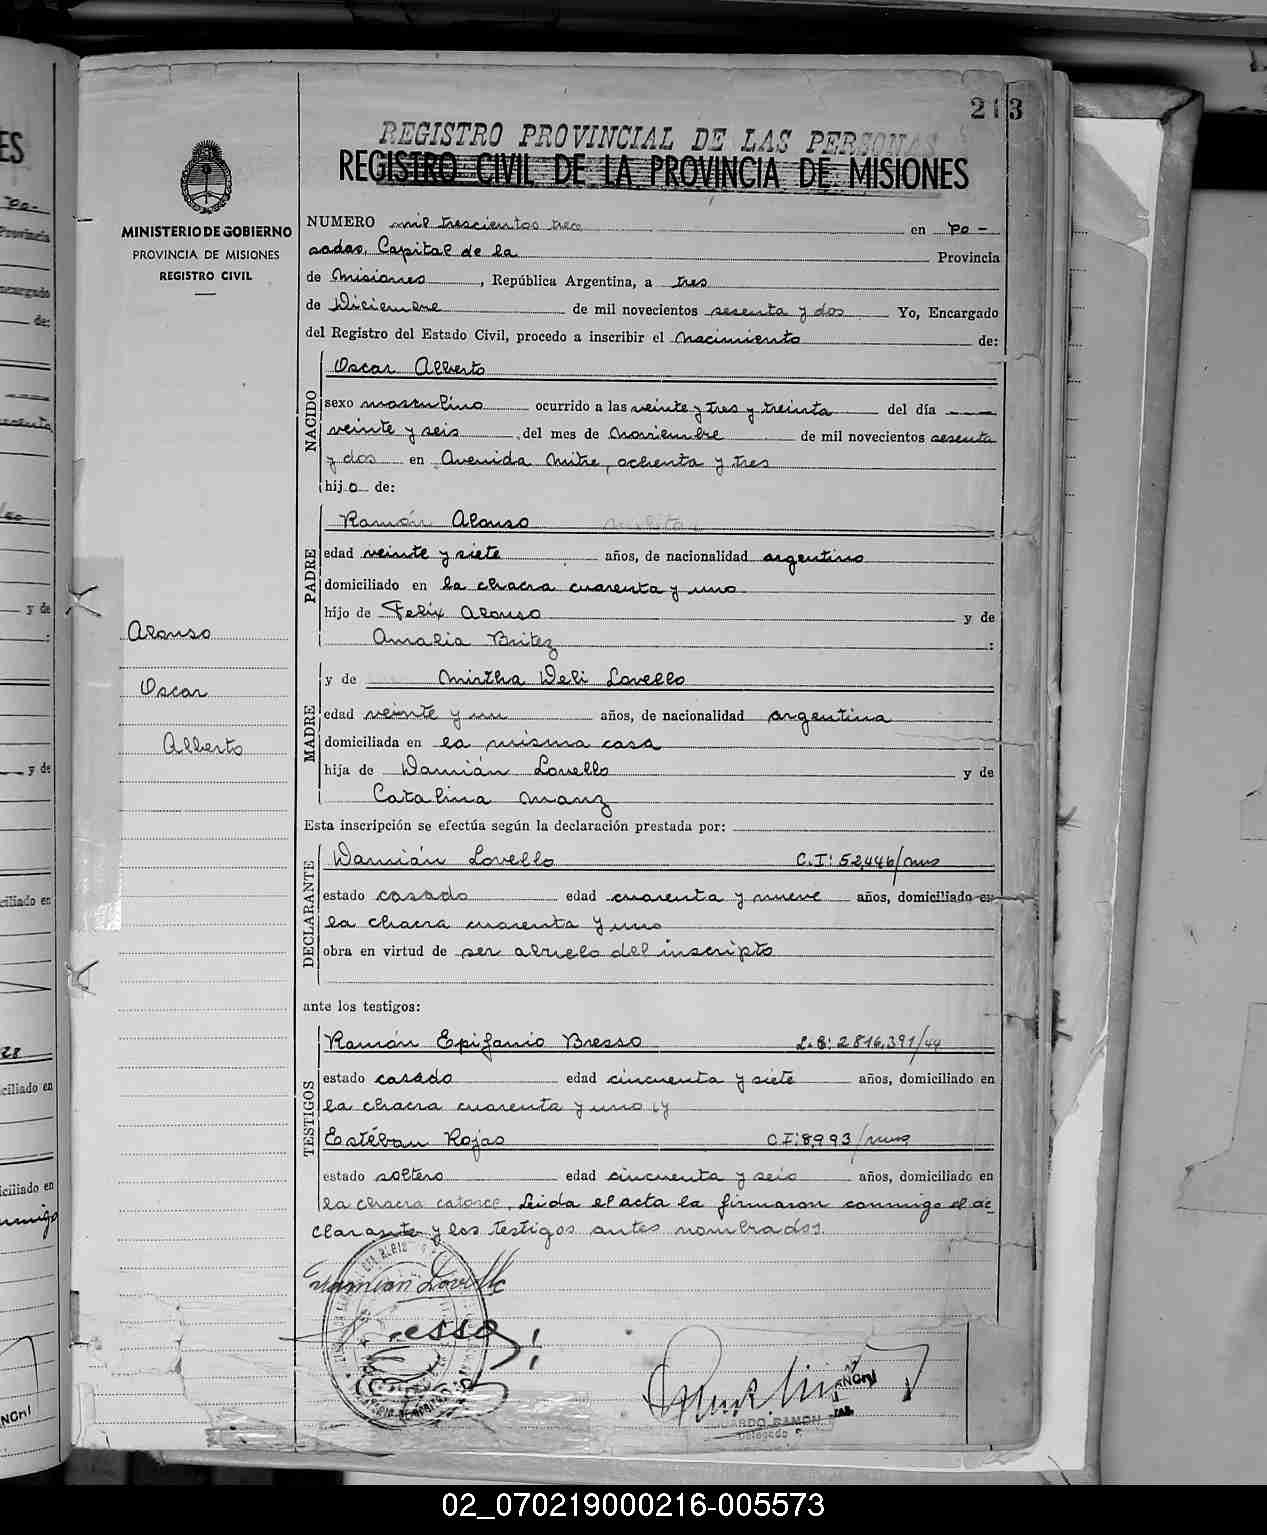 213
REGISTRO PROVINCIAL DE LAS PERSONAS
REGISTRO CIVIL DE LA PROVINCIA DE MISIONES
MINISTERIO DE GOBIERNO
PROVINCIA DE MISIONES
REGISTRO CIVIL
NUMERO mil trescientos tres en Po-
sadas, Capital de la Provincia
de Misiones, República Argentina, a tres
de Diciembre de mil novecientos sesenta y dos Yo, Encargado
del Registro del Estado Civil, procedo a inscribir el nacimiento de:
NACIDO
Oscar Alberto
sexo masculino ocurrido a las veinte y tres y treinta del día
veinte y seis del mes de Noviembre de mil novecientos sesenta
y dos en Avenida Mitre, ochenta y tres
hijo de:
PADRE
Ramón Alonso
edad veinte y siete años, de nacionalidad argentino
domiciliado en la chacra cuarenta y uno
hijo de Felix Alonso y de
Amalia Britez :
Alonso
Oscar
Alberto
MADRE
y de Mirtha Deli Lovello
edad veinte y un años, de nacionalidad argentina
domiciliada en la misma casa
hija de Damián Lovello y de
Catalina Manz
Esta inscripción se efectúa según la declaración prestada por:
DECLARANTE
Damián Lovello C.I: 52,446/mns
estado casado edad cuarenta y nueve años, domiciliado en
la chacra cuarenta y uno
obra en virtud de ser abuelo del inscripto
ante los testigos:
TESTIGOS
Ramón Epifanio Bresso L.E: 2816,391/44
estado casado edad cincuenta y siete años, domiciliado en
la chacra cuarenta y uno y
Estéban Rojas C.I: 8,993/mns
estado soltero edad cincuenta y seis años, domiciliado en
la chacra catorce. Leida el acta la firmaron conmigo el de
clarante y los testigos antes nombrados.
Damian Lovello
EDUARDO RAMON
Delegado
02_070219000216-005573